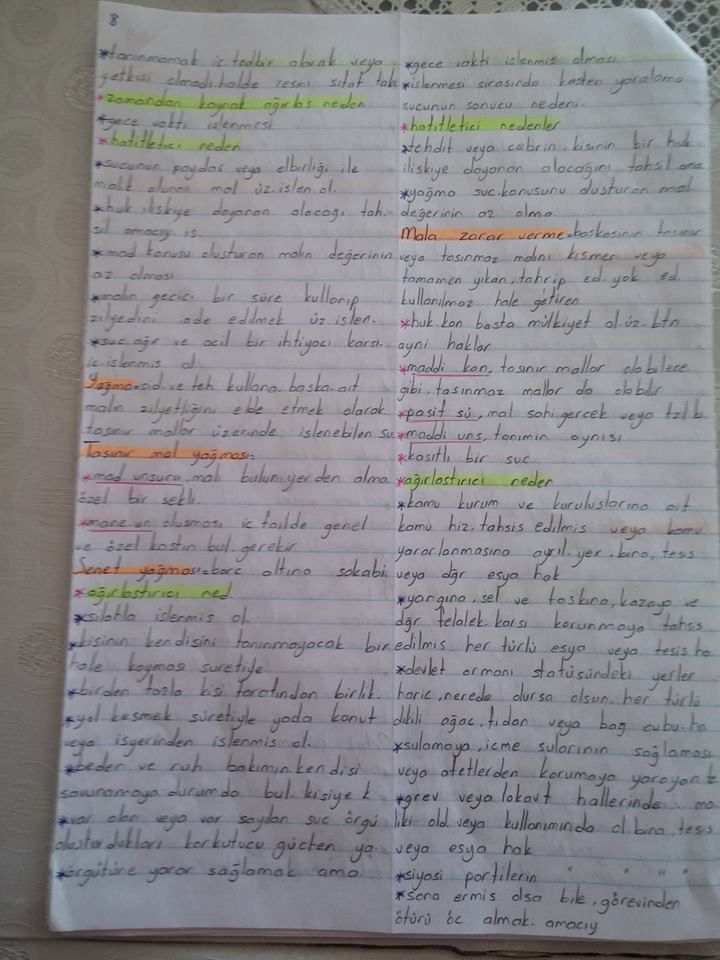 8
*tanınmamak iç tedbir alarak veya
yetkisi olmadı.halde resmi sıfat tak
*zamandan kaynak ağırlaş neden
*gece vakti işlenmesi
*hafifletici neden
*suçunun paydaş veya elbirliği ile
malik olunan mal üz.işlen.ol.
*huk.ilişkiye dayanan alacağı tah.
sil amacıy iş.
*mad konusu oluşturan malın değerinin
az olması
*malın geçici bir süre kullanıp
zilyedini iade edilmek üz işlen.
*suç.ağır ve acil bir ihtiyacı karşı.
iç.işlenmiş ol.
Yağma=cid.ve teh kullana.başka.ait
malın zilyetliğini elde etmek olarak
taşınır mallar üzerinde işlenebilen su
Taşınır mal yağması:
*mad unsuru,malı bulun.yerden alma
özel bir şekli.
*mane un oluşması iç failde genel
ve özel kastın bul.gerekir
Senet yağması=borç altına sokabi
*ağırlaştırıcı ned
*silahla işlenmiş ol
*kişinin kendisini tanınmayacak bir
hale koyması suretiyle
*birden fazla kişi tarafından birlik.
*yol kesmek süretiyle yada konut
veya işyerinden işlenmiş ol.
*beden ve ruh bakımın.kendisi
savunamaya.durumda bul.kişiye k
*var olan veya var sayılan suç örgü
oluşturdukları korkutucu güçten ya
*örgütüne yarar sağlamak ama
*gece vakti işlenmiş olması
*işlenmesi sırasında kasten yaralama
suçunun sonucu nedeni.
*hafifletici nedenler
*tehdit veya cebrin.kişinin bir huk
ilişkiye dayanan alacağını tahsil ama
*yağma suç.konusunu oluşturan mal
değerinin az olma
Mala zarar verme=başkasının taşınır
veya taşınmaz malını kısmen veya
tamamen yıkan.tahrip ed.yok ed.
kullanılmaz hale getiren
*huk.kon başta mülkiyet ol.üz.btn
ayni haklar
*maddi kon, taşınır mallar olabilece
gibi.taşınmaz mallar da olabilir
*pasif sü,mal sahi.gerçek veya tzl.k
*maddi uns, tanımın aynısı
*kasıtlı bir suç
*ağırlaştırıcı neden
*kamu kurum ve kuruluşlarına ait
kamu hiz.tahsis edilmiş veya kamu
yararlanmasına ayrıl.yer.bina,tess
veya dğr eşya hak
*yangına,sel ve taşkına,kazaya ve
dğr felalek.karşı korunmaya tahss
edilmiş her türlü eşya veya tesis.ha
*devlet ormanı statüsündeki yerler
hariç,nerede dursa olsun.her türlü
dikili ağaç.fidan veya bağ çubu.ha
*sulamaya,içme sularının sağlaması
veya afetlerden korumaya yarayan t
*grev veya lokavt hallerinde ma
liki old veya kullanımında ol bina,tesis
veya eşya hak
*siyasi partilerin " " " "
*sona ermiş olsa bile,görevinden
ötürü öc almak.amacıy